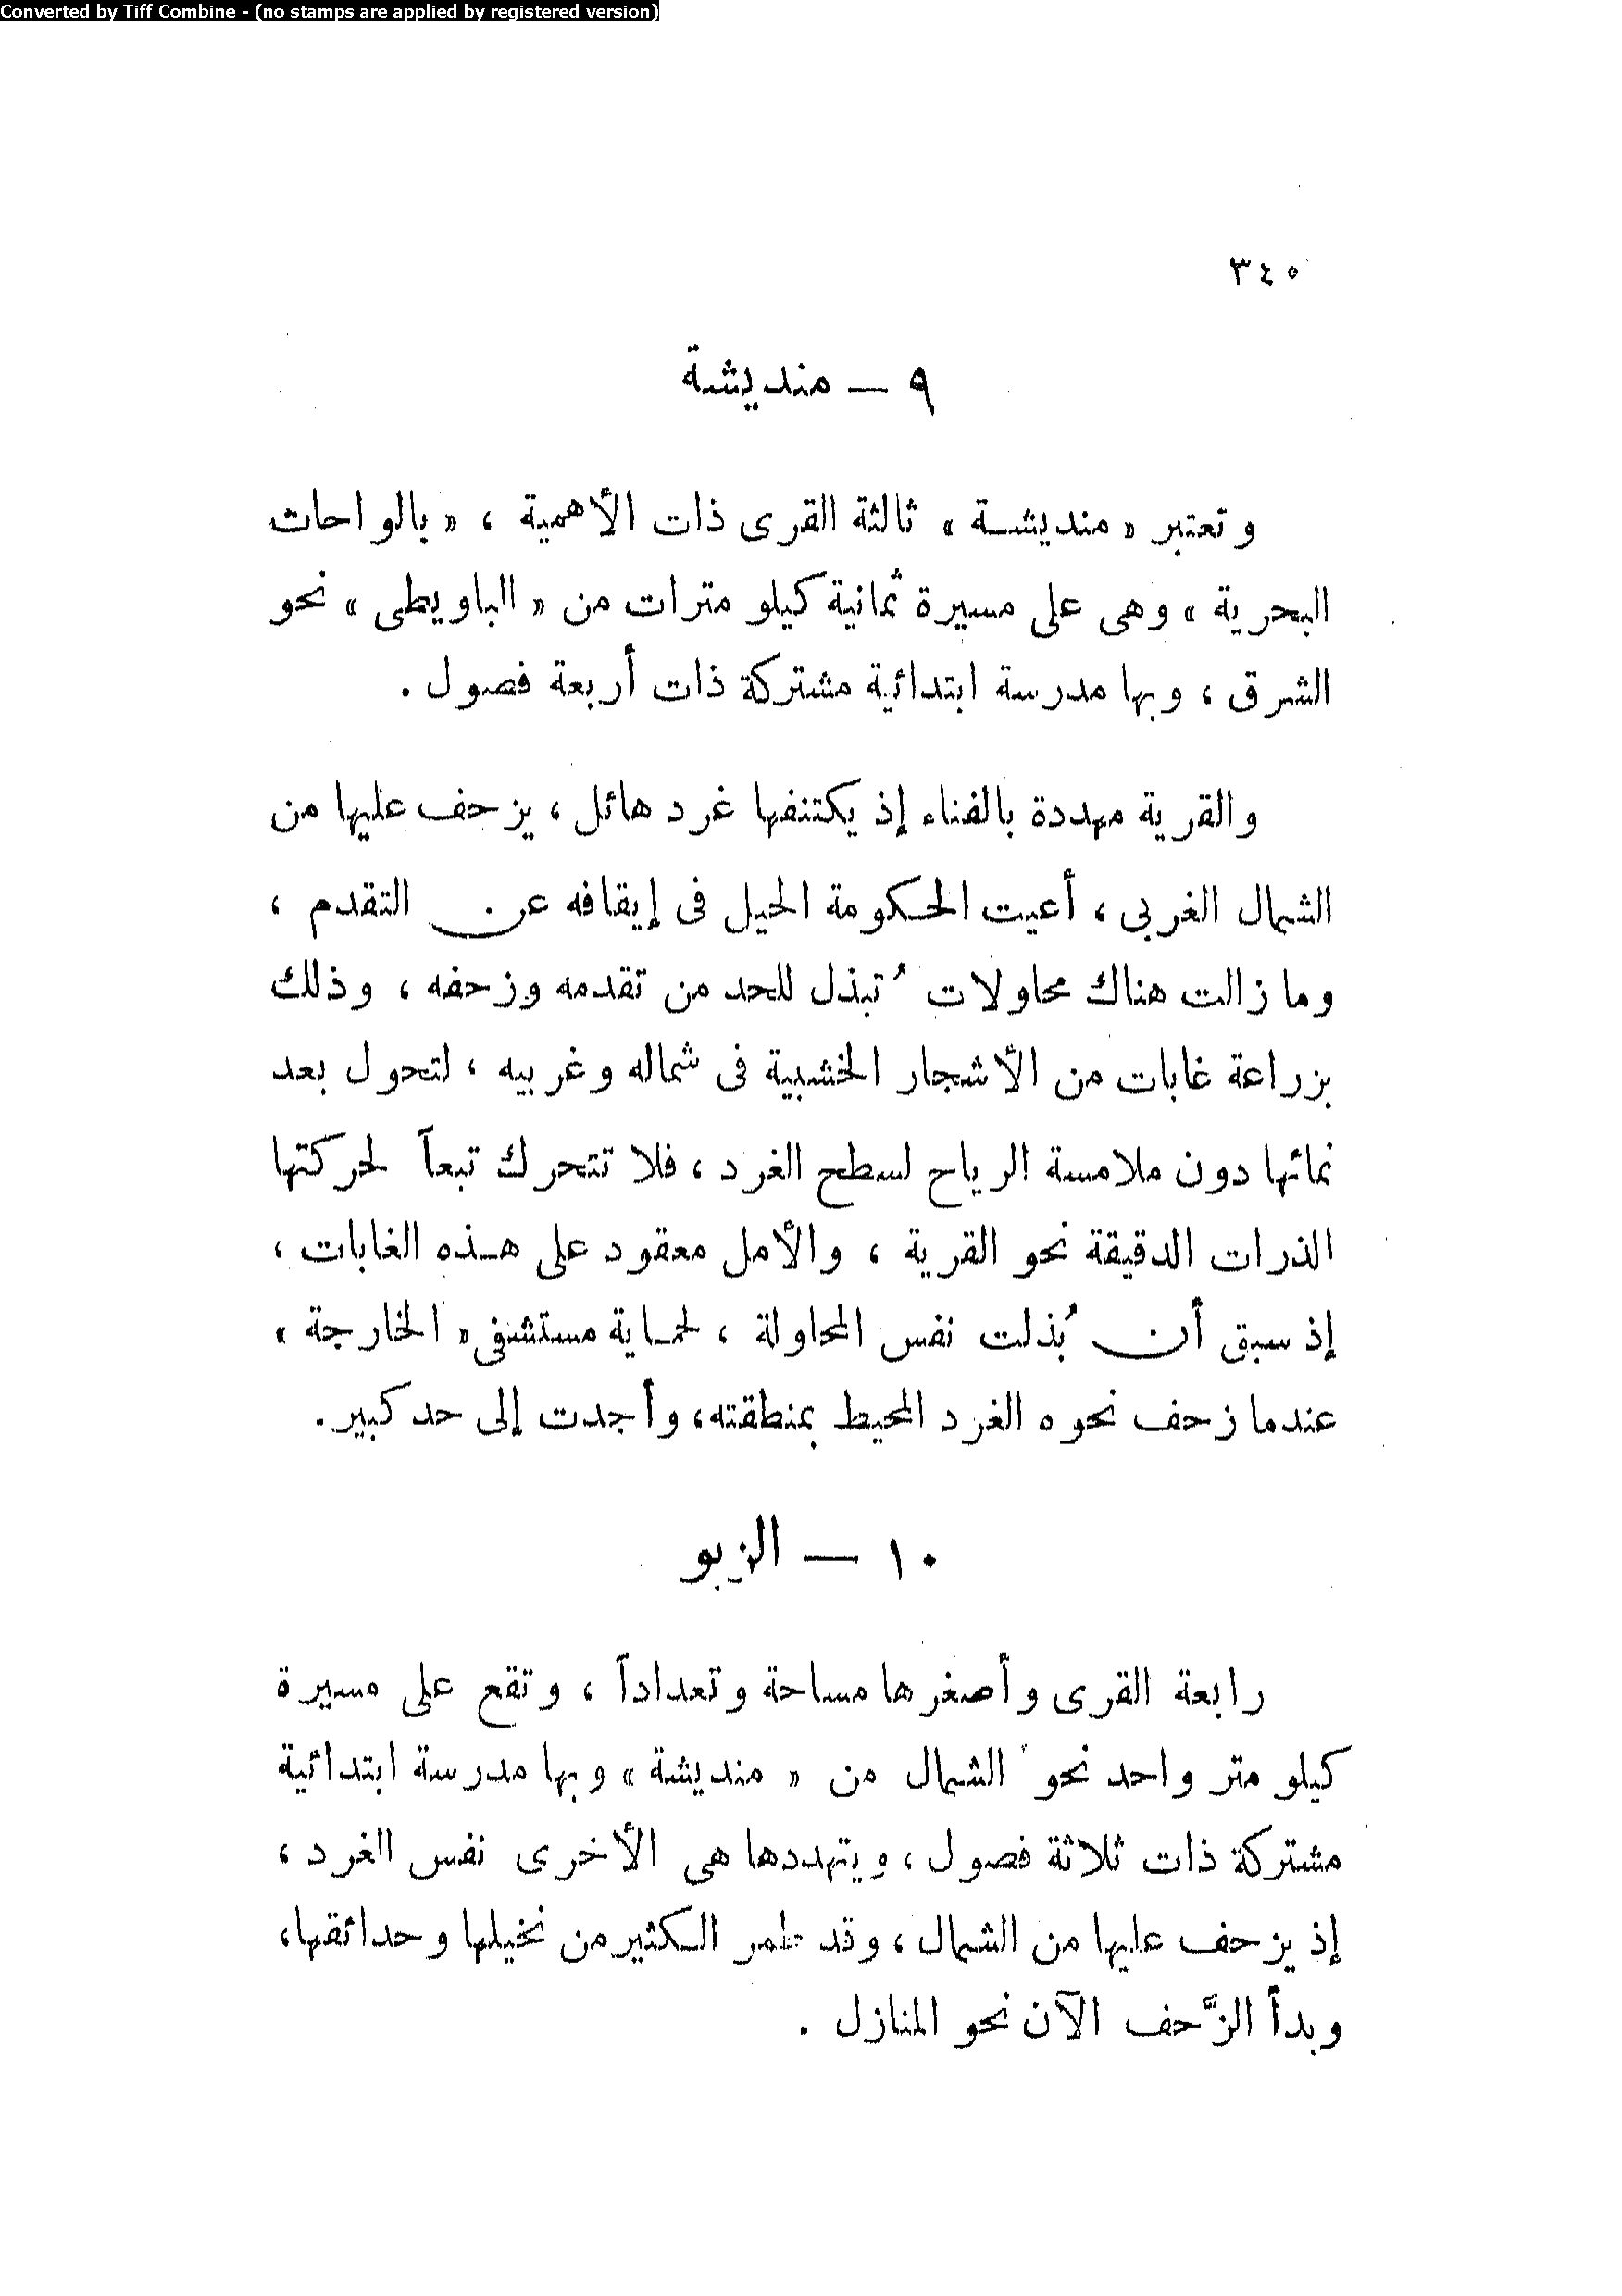 Converted by Tiff Combine - (no stamps are applied by registered version)
٣٤٠
٩ — منديشة
وتعتبر « منديشـة » ثالثة القرى ذات الأهمية ، « بالواحات
البحرية » وهى على مسيرة ثمانية كيلو مترات من « الباويطى » نحو
الشرق ، وبها مدرسة ابتدائية مشتركة ذات أربعة فصول .
والقرية مهددة بالفناء إذ يكتنفها غرد هائل ، يزحف عليها من
الشمال الغربى ، أعيت الحكومة الحيل فى إيقافه عن التقدم ،
وما زالت هناك محاولات تُبذل للحد من تقدمه وزحفه ، وذلك
بزراعة غابات من الأشجار الخشبية فى شماله وغربيه ، لتحول بعد
نمائها دون ملامسة الرياح لسطح الغرد ، فلا تتحرك تبعاً لحركتها
الذرات الدقيقة نحو القرية ، والأمل معقود على هـذه الغابات ،
إذ سبق أن بُذلت نفس المحاولة ، لحمـاية مستشفى « الخارجة »
عندما زحف نحوه الغرد المحيط بمنطقته، وأجدت إلى حد كبير .
١٠ — الزبو
رابعة القرى وأصغرها مساحة وتعداداً ، وتقع على مسيرة
كيلو متر واحد نحو الشمال من « منديشة » وبها مدرسة ابتدائية
مشتركة ذات ثلاثة فصول ، ويتهددها هى الأخرى نفس الغرد ،
إذ يزحف عليها من الشمال ، وقد طمر الـكثير من نخيلها وحدائقها،
وبدأ الزَّحف الآن نحو المنازل .